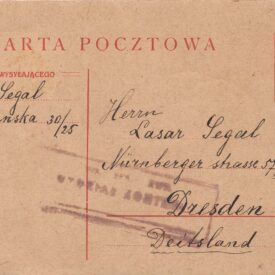 ARTA POCZTOWA
WYSYŁAJĄCEGO
Segal
ńska 30/25
Herrn
Lasar Segal
Nürnberger strasse 57
Dresden
Deitsland